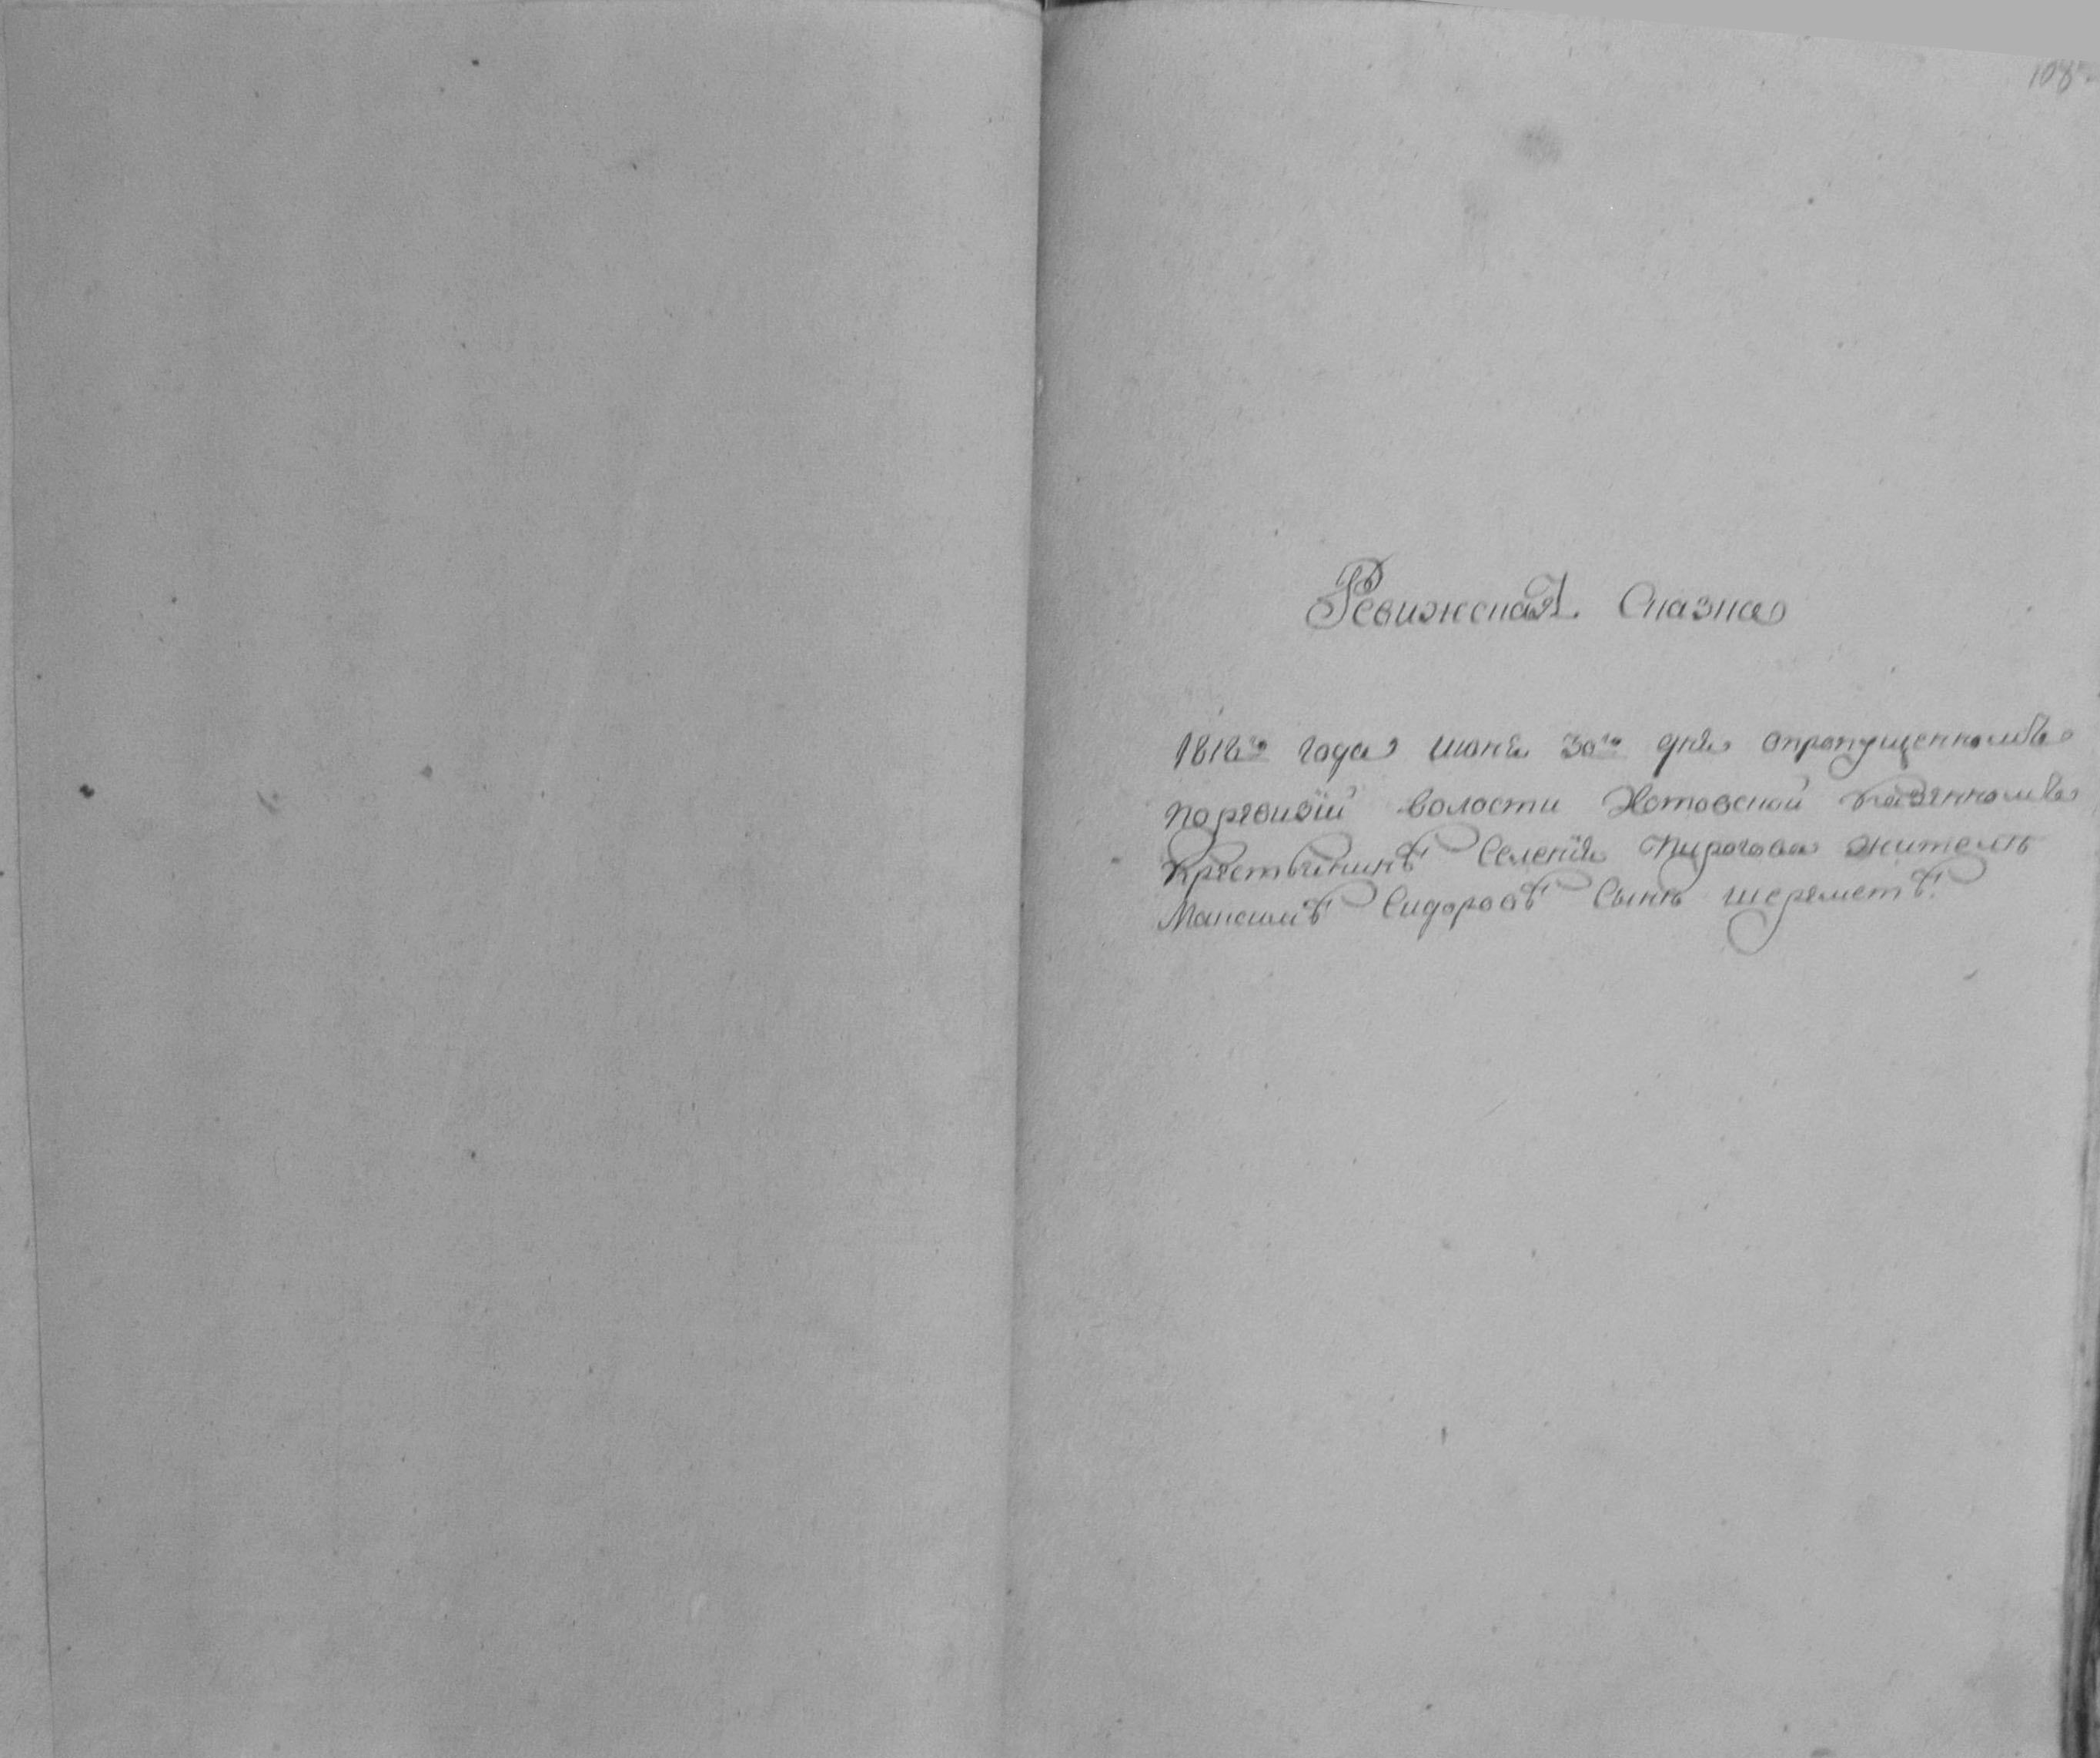 Ревижская Сказка
1812го года июня 30го дня опропущенномъ
поревизіи волости Хотовской казенномъ
Крестьянинѣ Селенія Пирогова жителѣ
Максимѣ Сидоровѣ Сынѣ шереметѣ.